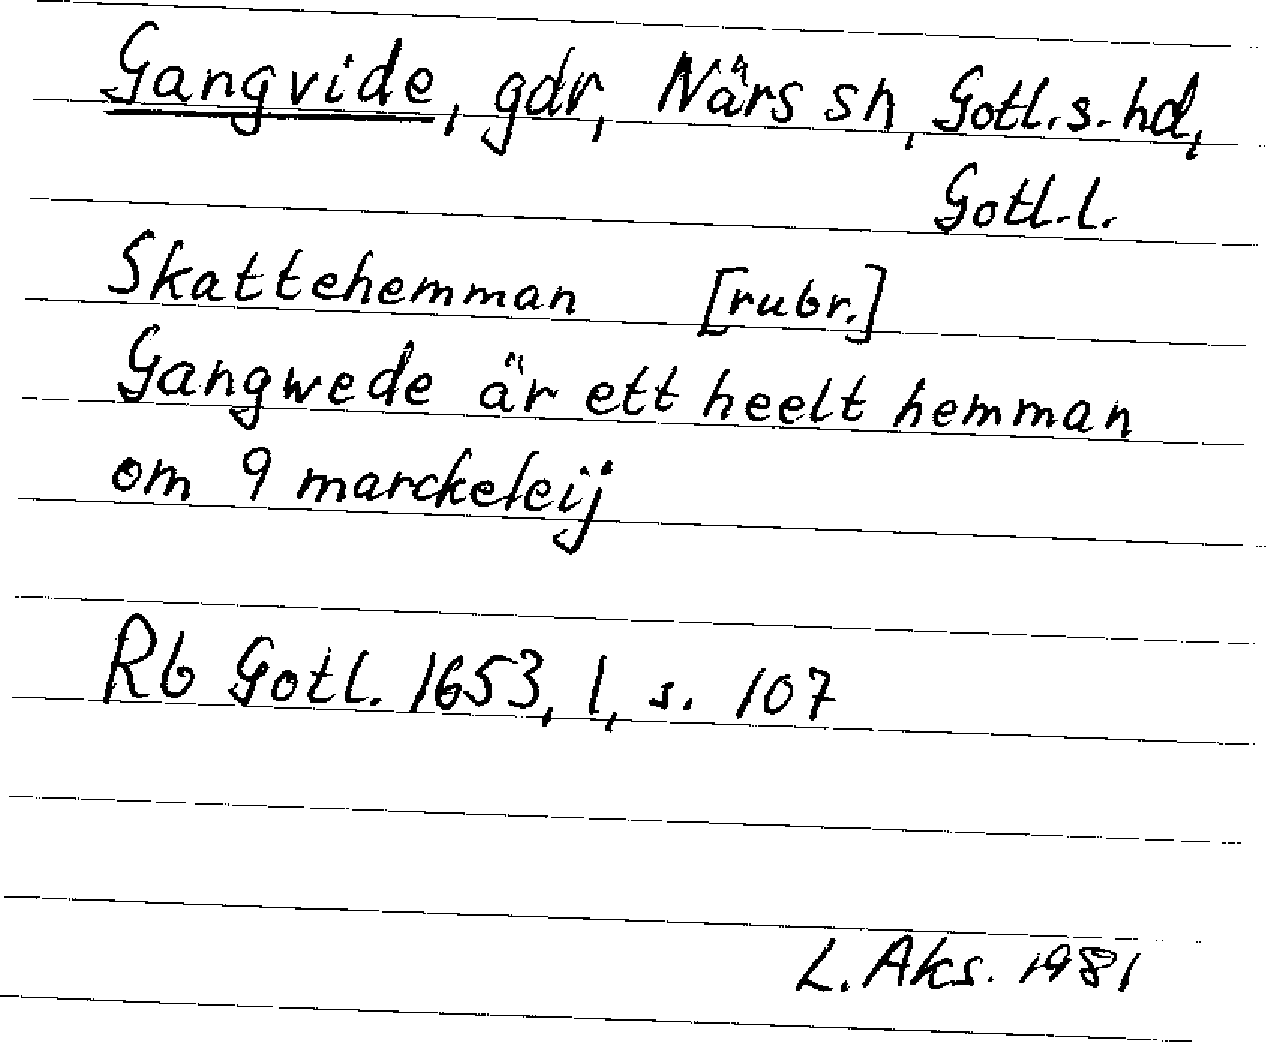 Gangvide, gdr, Närs sn, Gotl. s. hd,
Gotl. l.
Skattehemman [rubr.]
Gangwede är ett heelt hemman
om 9 marckeleij
Rb Gotl. 1653, 1, s. 107
L. Aks. 1981